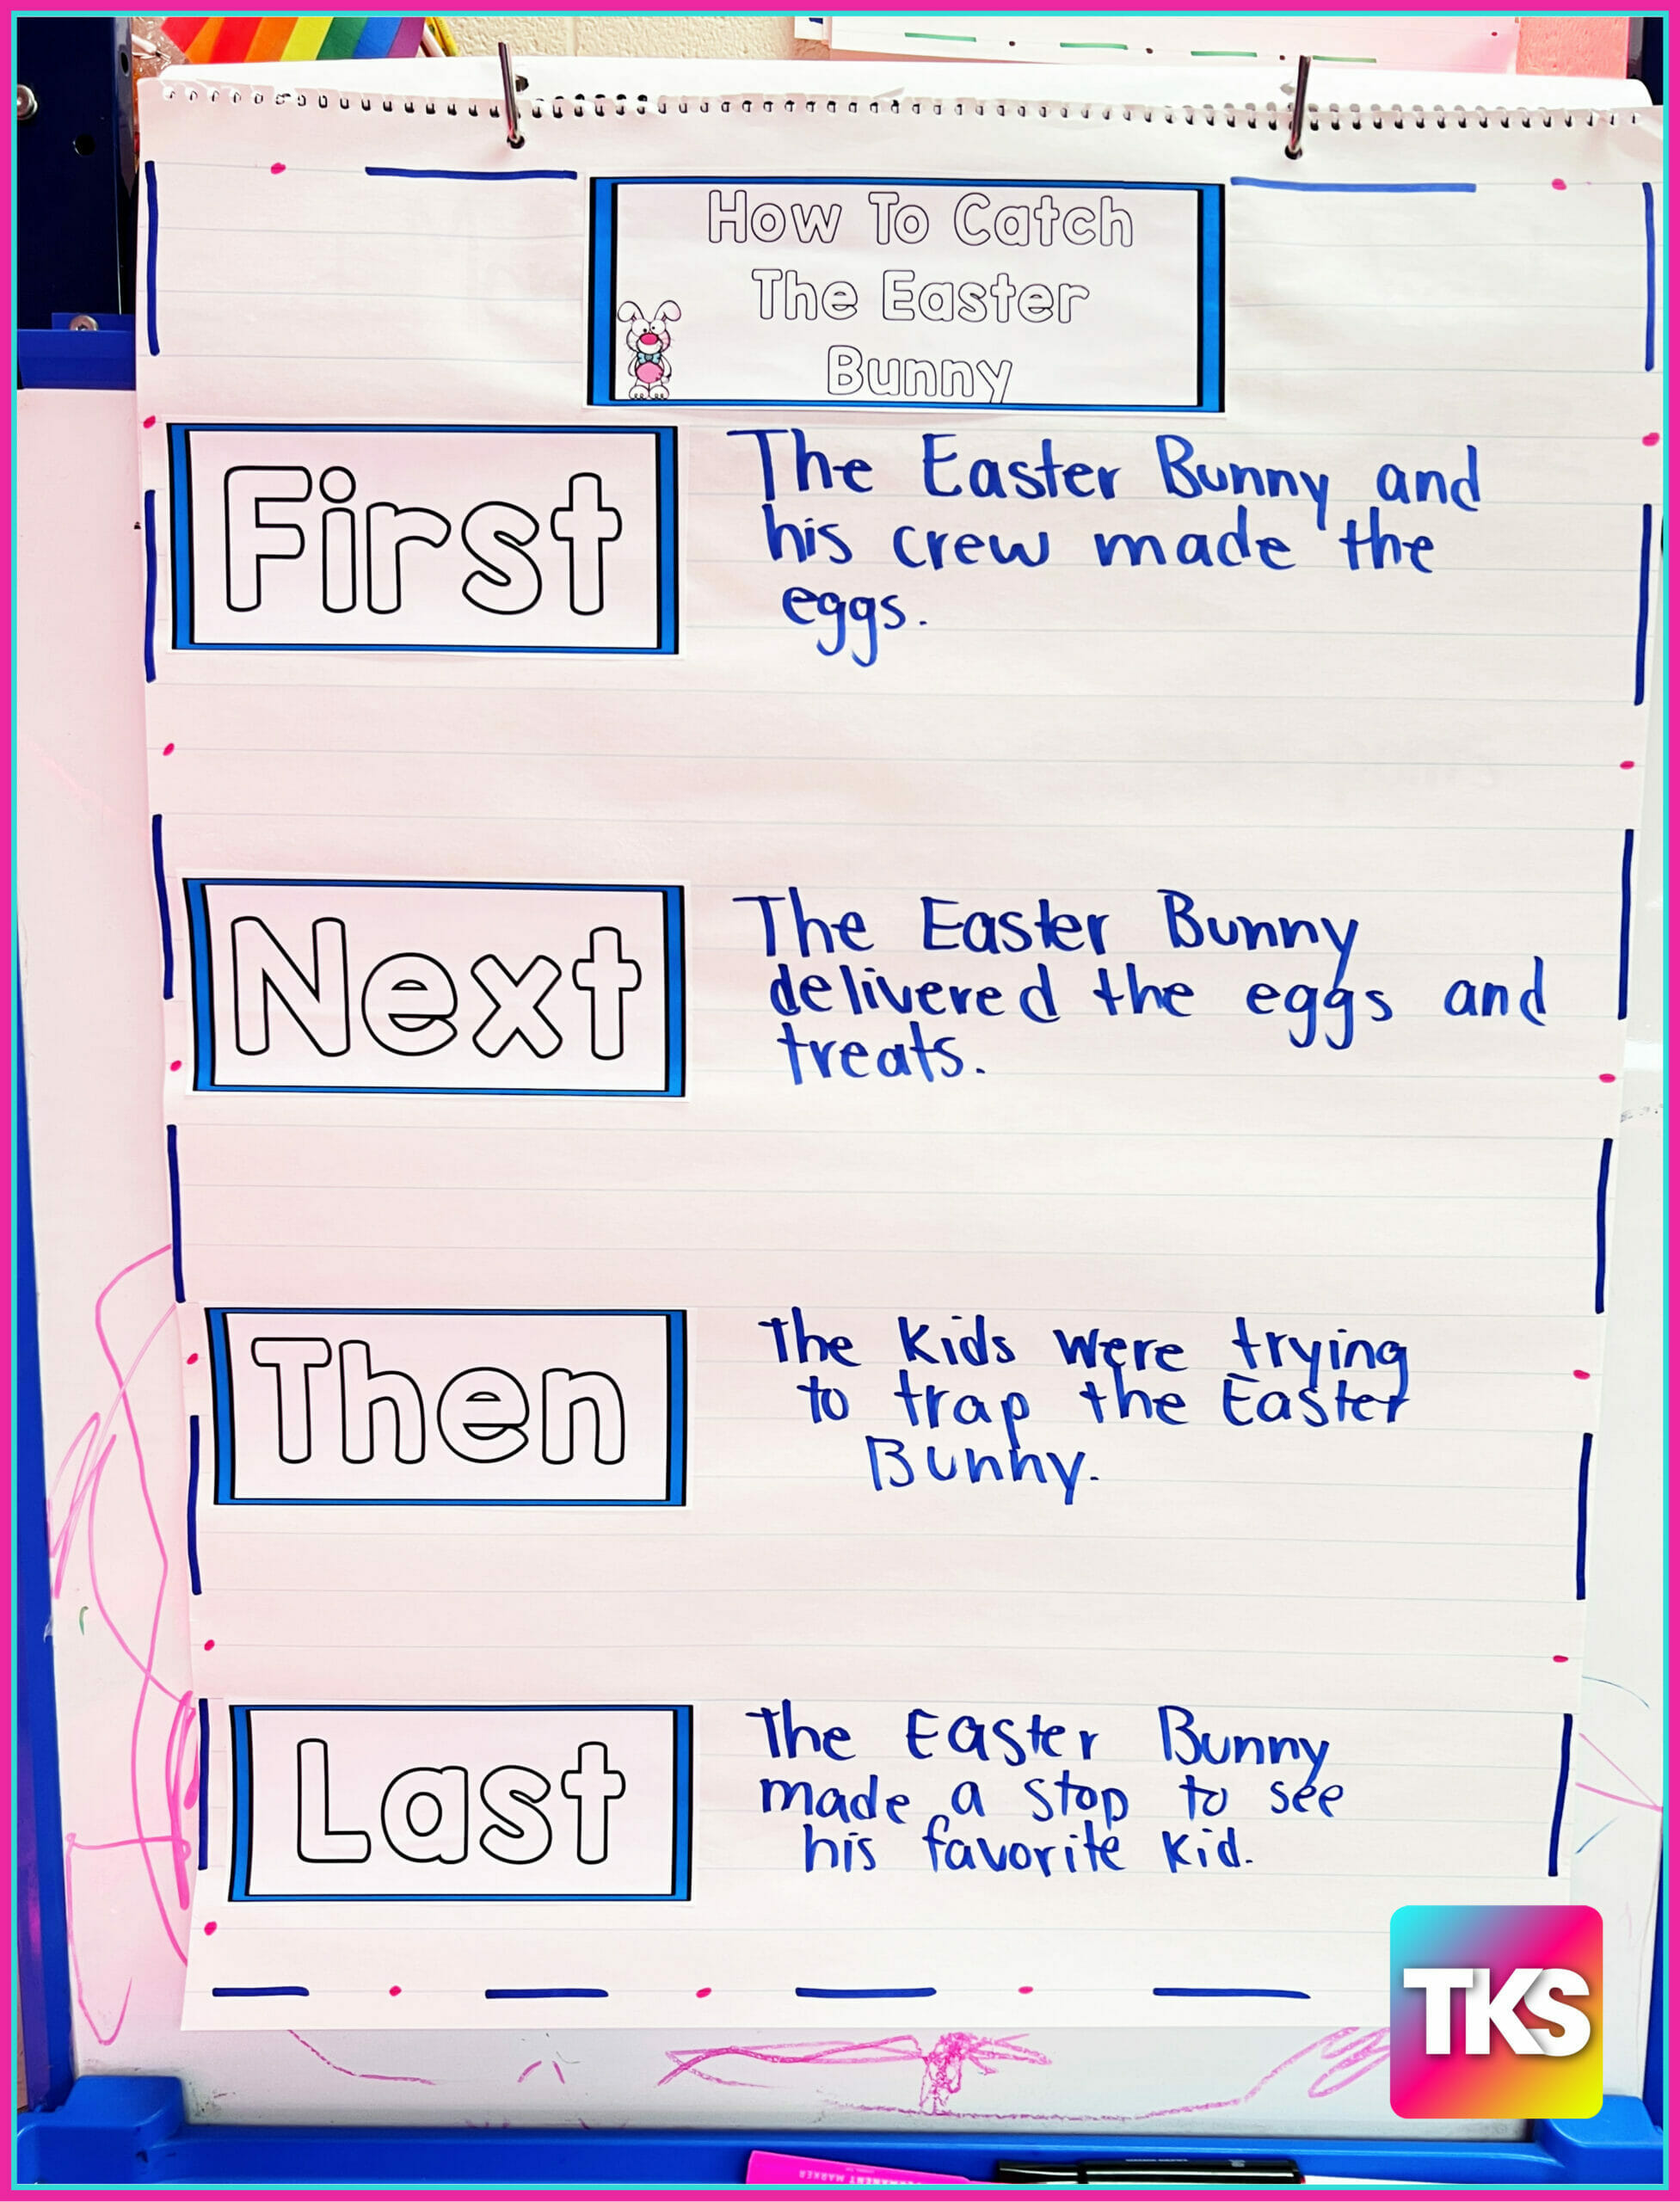 How To Catch
The Easter
Bunny
First
The Easter Bunny and
his crew made the
eggs.
Next
The Easter Bunny
delivered the eggs and
treats.
Then
The Kids were trying
to trap the Easter
Bunny.
Last
The Easter Bunny
made a stop to see
his favorite kid.
TKS